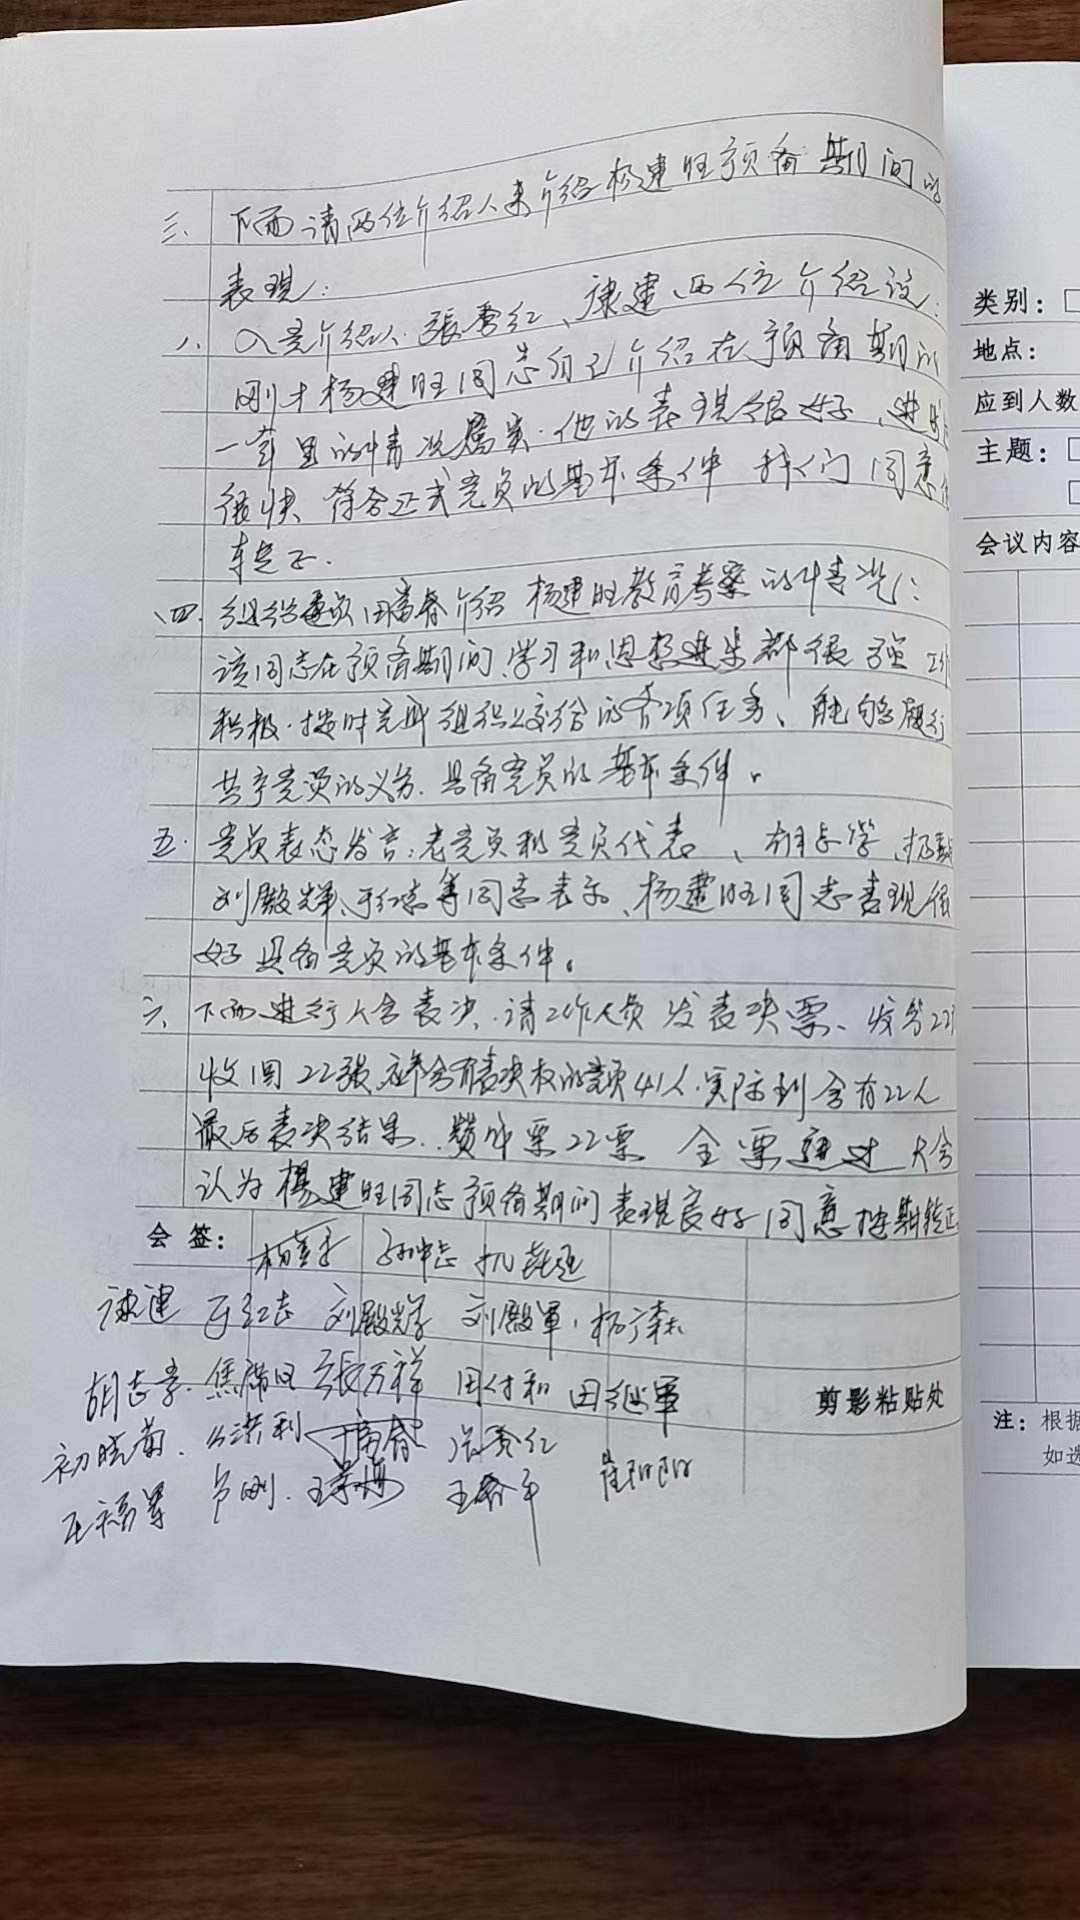 三、下面请两位介绍人来介绍杨建旺预备期间的
表现：
八、入党介绍人：张秀红、康建、两位介绍说：
刚才杨建旺同志自己介绍在预备期的
一年里的情况属实．他的表现很好、进
很快 符合正式党员的基本条件 我们同意
转正．
四、组织委员田富春介绍 杨建旺教育考察的情况：
该同志在预备期间、学习和思想进步都很强 工作
积极．按时完成组织上交给的各项任务、能够履行
共产党员的义务．具备党员的基本条件。
五．党员表态发言：老党员和党员代表、胡志学、
刘殿辉、于红志等同志表示、杨建旺同志表现很
好具备党员的基本条件。
六、下面进行大会表决．请工作人员 发表决票、发出22
收回22张．本会有表决权的党员41人．实际到会有22人
最后表决结果．赞成票22票 全票通过 大会
认为杨建旺同志预备期间表现良好同意按期转正
会 签：
康建 于红志 刘殿辉 刘殿军．杨广森
胡志学．焦 张万祥 田付和 田继军
初晓菊． 洪利 张秀红 崔阳阳
王福军 刚．王 王春平
剪影粘贴处
类别：
地点：
应到人数
主题：
会议内容
注：根据
如选